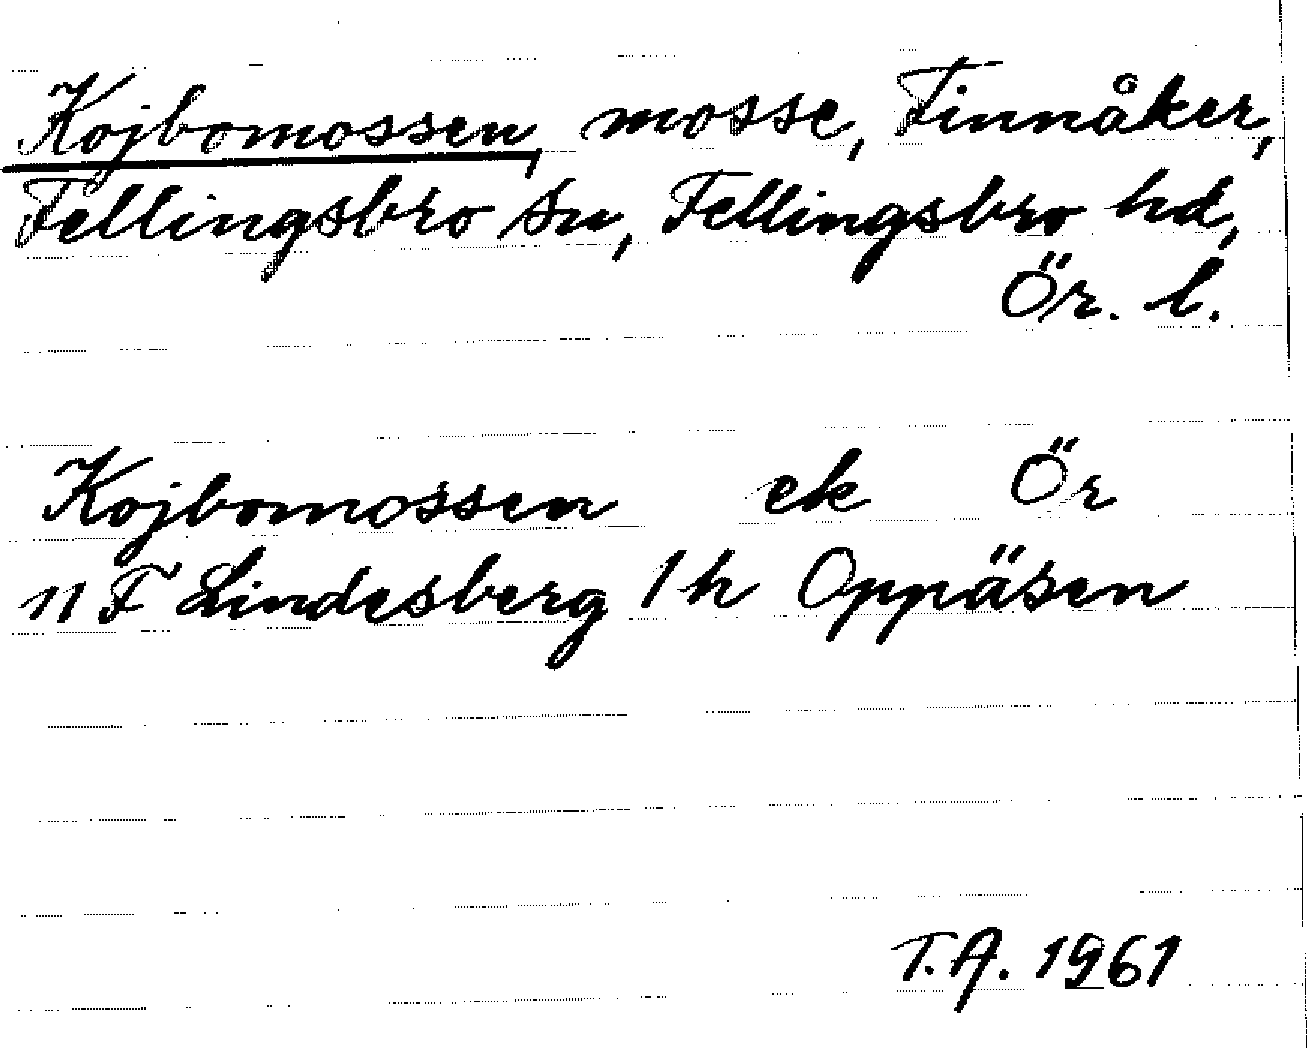 Kojbomossen, mosse, Finnåker,
Fellingsbro sn, Fellingsbro hd,
Ör. l.
Kojbomossen ek Ör
11 F Lindesberg 1 h Oppåsen
T.A. 1961